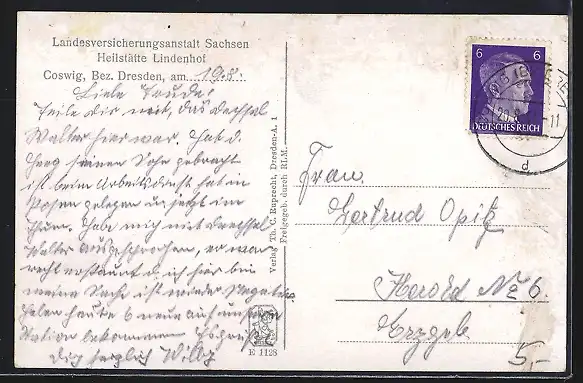 Landesversicherungsanstalt Sachsen
Heilstätte Lindenhof
Coswig, Bez. Dresden, am 19.8.
Liebe Trude!
Teile dir mit, das Drechsel
Walter hier war. Hat d.
seinen Sohn gebracht
ist beim Arbeitsdienst hat in
Posen gelegen u. jetzt im
Habe mich mit Drechsel
Walter ausgesprochen, er war
recht erstaunt d. ich hier bin
meine Sache ist wieder Negativ
haben heute 6 neue auf unserer
Station bekommen Es grüßt
Dich herzlich Willy
Verlag Th. C. Ruprecht, Dresden-A. 1
Freigegeb. durch RLM.
E 1128
6 6
DEUTSCHES REICH
d
Frau
Gertrud Opitz
Herold No 6.
Erzgeb
5,-